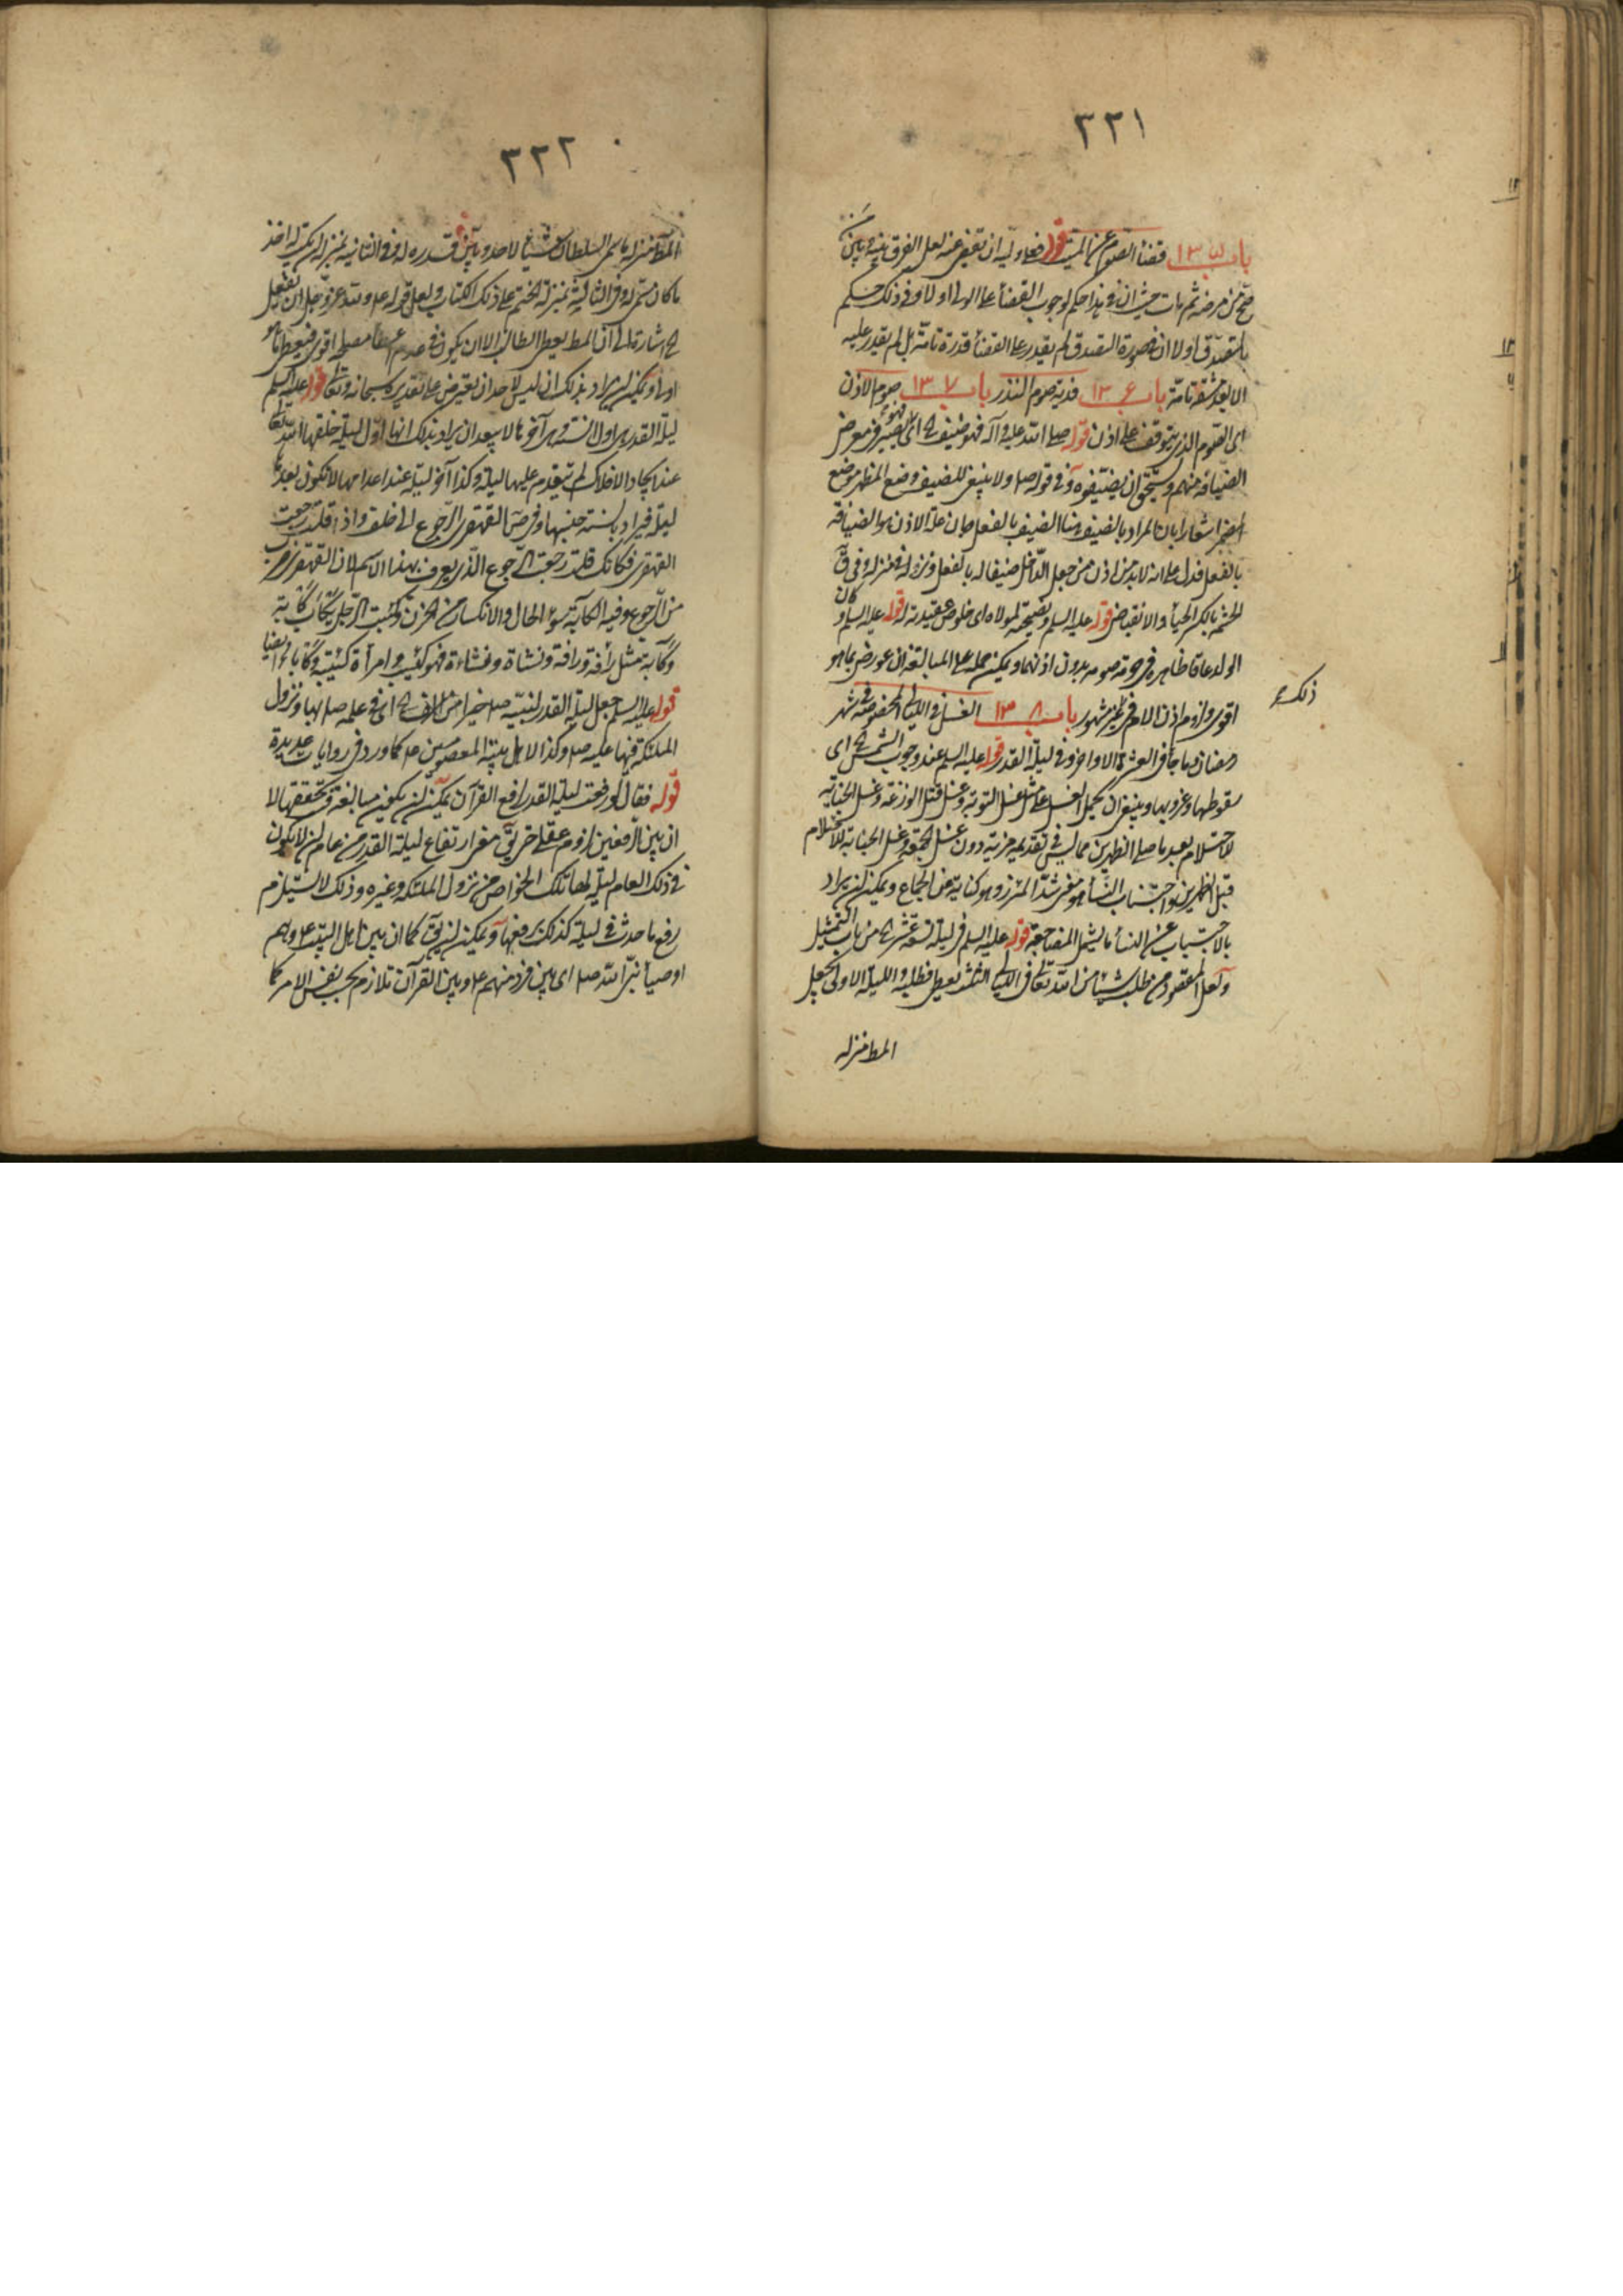 ٣٢١
باب ١٣٥ قضاء الصوم عن الميت قوله فعلى وليه ان يقضى عنه لعل الفرق بينه وبين
صح من مرضه ثم مات حيث ان فى هذا حكم لوجوب القضاء على الولى اولا وفى ذلك حكم
بالتصدق اولا ان فى صورة التصدق لم يقدر على القضاء قدرة تامة بل لم يقدر عليه
الا بعد مشقة تامة باب ١٣٦ فدية صوم النذر باب ١٣٧ صوم الاذن
اى الصوم الذى يتوقف على اذن قوله صلى الله عليه وآله فهو ضيف اى يصير فى معرض
الضيافة منهم ويستحق ان يضيفوه وفى قوله ص ولا ينبغى للضيف وضع المظهر موضع
المضمر اشعارا بان المراد بالضيف هنا الضيف بالفعل وبان علة الاذن هو الضيافة
بالفعل فدل على انه لابد من اذن من جعل الداخل ضيفا له بالفعل ونزله فى منزله وفى ق
الحشمة بالكسر الحياء والانقباض قوله عليه السلم ونصيحته لمولاه اى خلوص عقيدته له قوله عليه السلم وكان
الولد عاقا ظاهره حرمة صومه بدون اذنهما ويمكن حمله على المبالغة ان عورض بما هو
ذلك
اقوى ولزوم اذن الام غير مشهور باب ١٣٨ الغسل فى الليالى المخصوصة فى شهر
رمضان وما جاء فى العشر الاواخر وفى ليلة القدر قوله عليه السلم عند وجوب الشمس اى
سقوطها وغروبها وينبغى ان يحمل الغسل على مثل غسل التوبة وغسل قتل الوزغة وغسل الجنابة
للاحتلام بعد ما صلى الظهرين مما ليس فى تقديمه مزية دون غسل الجمعة وغسل الجنابة للاحتلام
قبل الظهرين قوله واجتناب النساء هو معنى شد المئزر وهو كناية عن الجماع ويمكن ان يراد
بالاجتناب عن النساء ما يشمل المضاجعة قوله عليه السلم فى ليلة تسعة عشر من باب التمثيل
ولعل المقصود من طلب شيئا من الله تعالى فى الليالى الثلث يعطى فطلبه فى الليلة الاولى يجعل
المط منزلة
٣٢٢
المط منزلة ما سمى السلطان شيئا لاحد وبين قدره له وفى الثانية بمنزلة ان يكتب له اخذ
ما كان سمى له وفى الثالثة بمنزلة الختم على ذلك الكتاب ولعل قوله ع ولله عز وجل ان يفعل
اشارة الى ان المط يعطى الطالب الا ان يكون فى عدم اعطائه مصلحة اقوى فيعطى ما هو
اولى ويمكن ان يراد بذلك ان ليس لاحد ان يعترض على تقديره سبحانه وتعالى قوله عليه السلم
ليلة القدر هى اول السنة وهى آخرها لا يبعد ان يراد بذلك انها اول ليلة خلقها الله تعالى
عند ايجاد الافلاك لم يتقدم عليها ليلة وكذا آخر ليلة عند اعدامها لا تكون بعدها
ليلة فيراد بالسنة جنسها وفى ص القهقرى الرجوع الى خلف واذا قلت رجعت
القهقرى فكانك قلت رجعت الرجوع الذى يعرف بهذا الاسم لان القهقرى ضرب
من الرجوع وفيه الكآبة سوء الحال والانكسار من الحزن وكئب الرجل يكأب كأبة
وكآبة مثل رأفة ورآفة ونشأة ونشاءة فهو كئيب وامرأة كئيبة وكأباء ايضا
قوله عليه السلم جعل ليلة القدر لنبيه ص خيرا من الف اى فى علمه ص بها ونزول
الملئكة فيها عليه ص وكذا لاهل بيته المعصومين ع كما ورد فى روايات عديدة
قوله فقال لو رفعت ليلة القدر لرفع القرآن يمكن ان يكون مبالغة فى تحققها لا
ان بين الرفعين لزوم عقلى حتى يق معنى ارتفاع ليلة القدر من عام ان لا يكون
فى ذلك العام ليلة لها تلك الخواص من نزول الملئكة وغيره وذلك لا يستلزم
رفع ما حدث فى ليلة كذلك رفعها ويمكن ان يق كما ان بين اهل البيت ع وهم
اوصياء نبى الله ص اى بين فرد منهم ع وبين القرآن تلازم بحسب نفس الامر كما